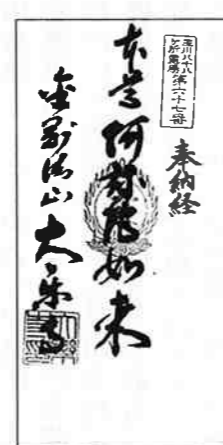 玉川八十八
ヶ所霊場第六十七番
奉納経
本尊阿弥陀如来
金剛山大楽寺